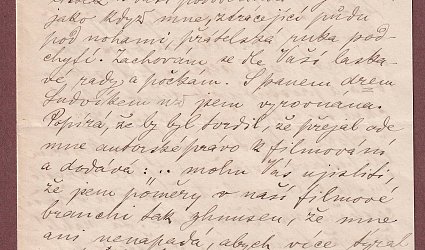 jako když mně, ztrácející půdu
pod nohami, přátelská ruka pod-
chytí. Zachovám se dle Vaší laska-
vé rady a počkám. S panem drem
jsem vyrovnána.
Popírá, že by byl tvrdil, že přejal ode
mne autorské právo k filmování
a dodává: .. mohu Vás ujistiti,
že jsem poměry v naší filmové
branchi tak zhnusen, že mne
ani nenapadá, abych více týral